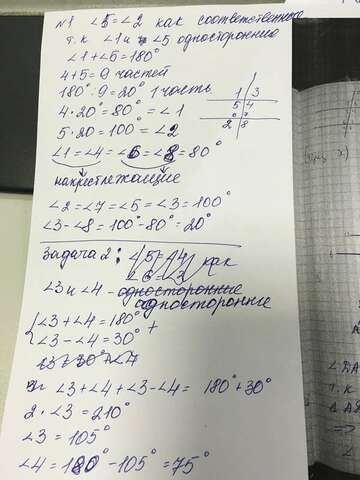 №1 ∠5=∠2 как соответственно
т.к ∠1 и ∠5 односторонние
∠1+∠5=180°
4+5=9 частей
180°:9=20° 1 часть
4·20°=80°=∠1
5·20=100°=∠2
∠1=∠4=∠6=∠8=80°
накрестлежащие
∠2=∠7=∠5=∠3=100°
∠3-∠8=100°-80°=20°
1 3
5 4
6 7
2 8
Задача 2: ∠5=∠4
∠6=∠3 как
∠3 и ∠4 - односторонние
односторонние
∠3+∠4=180° +
∠3-∠4=30°
∠3+∠4+∠3-∠4= 180°+30°
2·∠3=210°
∠3=105°
∠4=180°-105°=75°